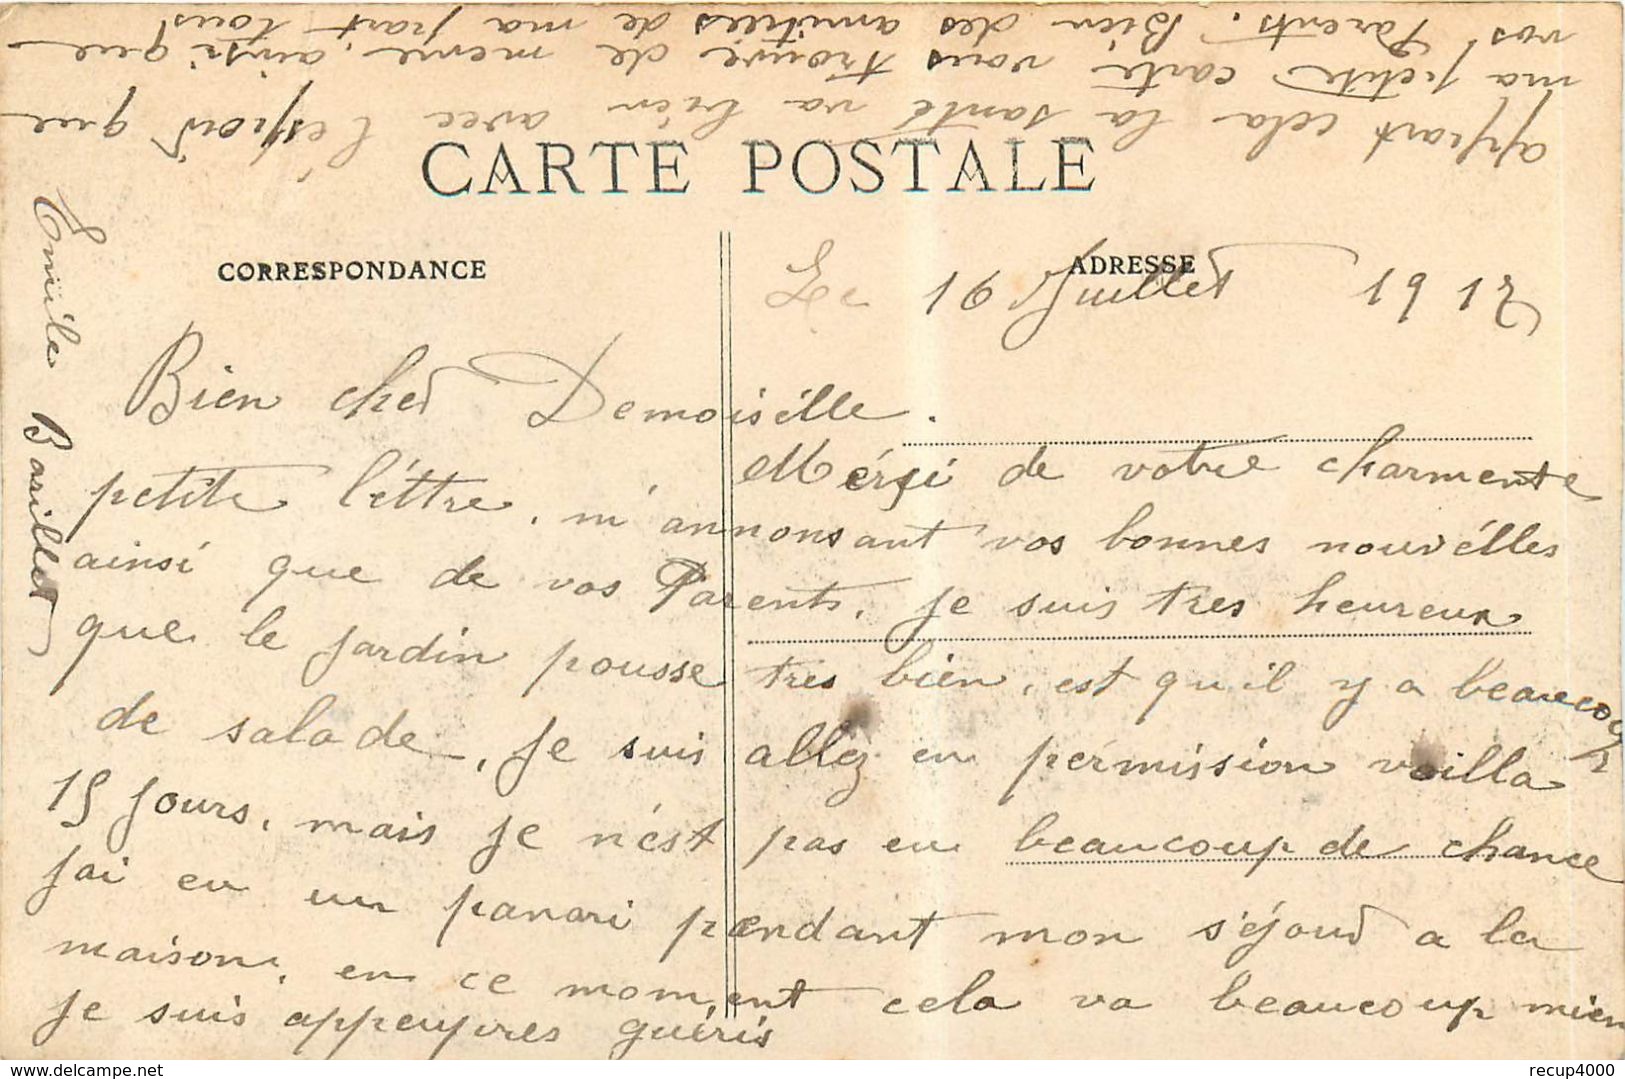 CARTE POSTALE
CORRESPONDANCE
ADRESSE
Le 16 Juillet 1917
Bien cher Demoisélle.
Mérsi de votre charmente
petite léttre, m'annonsant vos bonnes nouvélles
ainsi que de vos Parents, je suis tres heureux
que le jardin pousse tres bien, est qu'il y a beaucoup
de salade, je suis allez en pérmission voilla
15 jours, mais je n'ést pas eu beaucoup de chance
jai eu un panari pendant mon séjour a la
maison, en ce moment cela va beaucoup mien
je suis appeupres guéris
appart cela la santé va bien avec l'éspoir que
ma petite carte vous trouve de meme, ainsi que
vos Parents. Bien des amitiées de ma part tous
Emile Basillet
recup4000
Delcampe.net